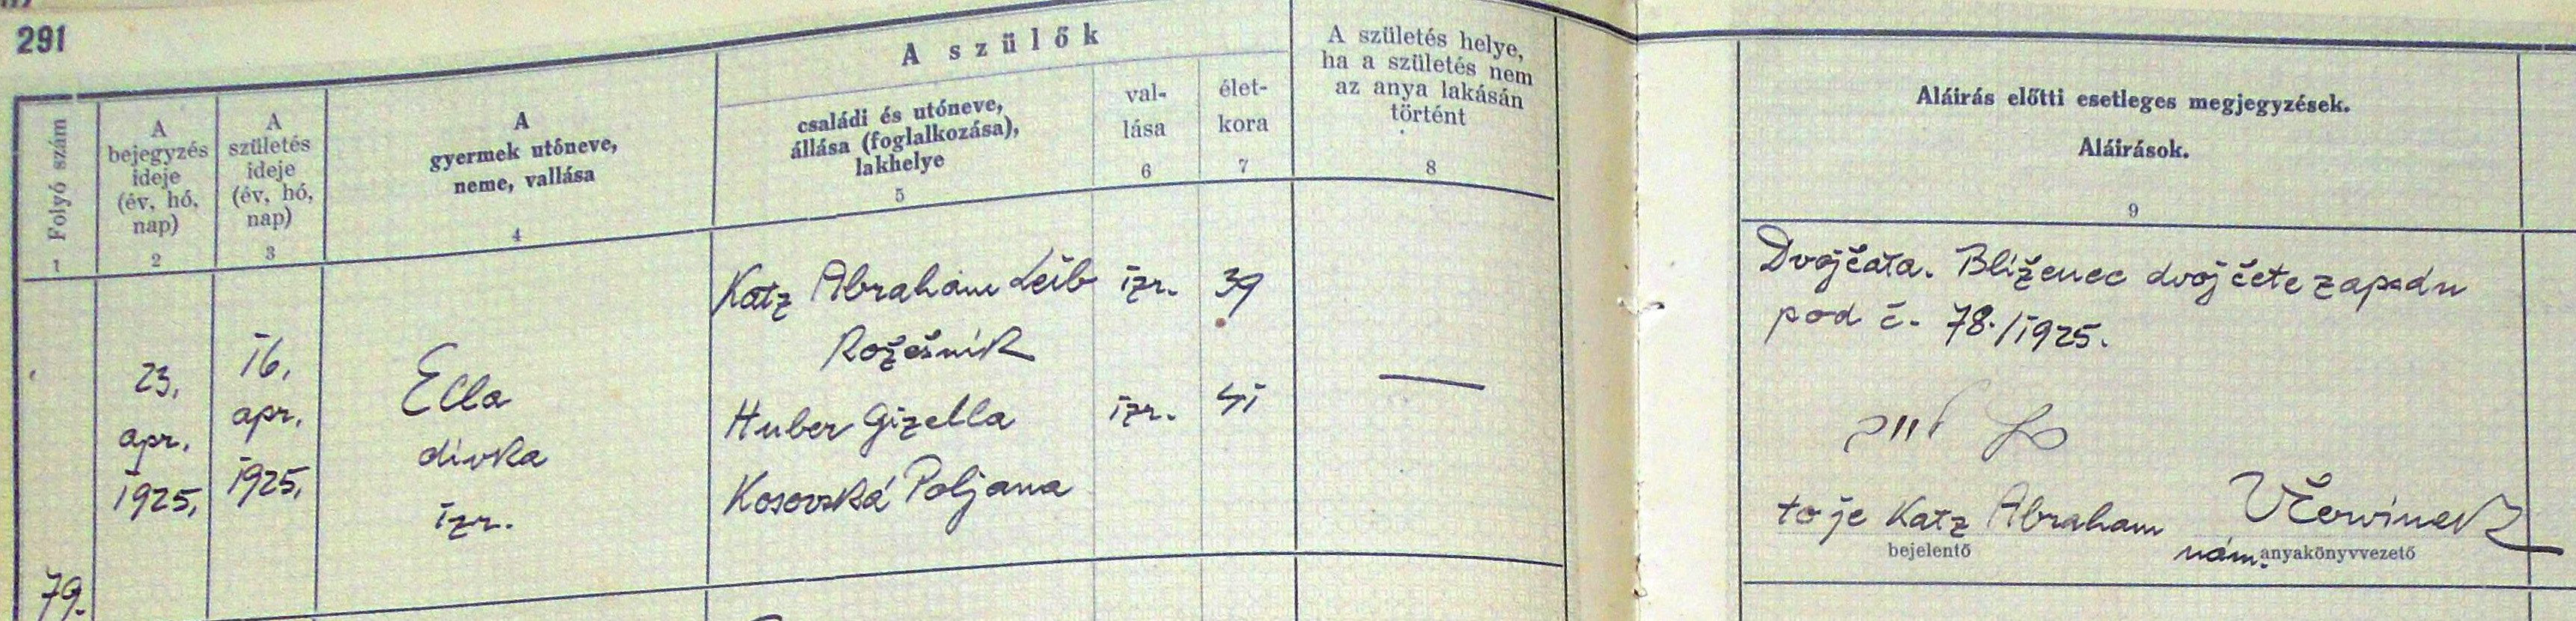 291
A szülők
Folyó szám
1
A
bejegyzés
ideje
(év, hó,
nap)
2
A
születés
ideje
(év, hó,
nap)
3
A
gyermek utóneve,
neme, vallása
4
családi és utóneve,
állása (foglalkozása),
lakhelye
5
val-
lása
6
élet-
kora
7
A születés helye,
ha a születés nem
az anya lakásán
történt
8
Aláirás előtti esetleges megjegyzések.
Aláirások.
9
79.
23,
apr.
1925,
16,
apr.
1925,
Ella
divka
izr.
Katz Abraham Leib
Huber Gizella
Kosovská Poljana
izr.
izr.
39
41
Dvojčata. Bliženec dvojčete zapsdn
pod č. 78./1925.
to je Katz Abraham
bejelentő
nám. anyakönyvvezető